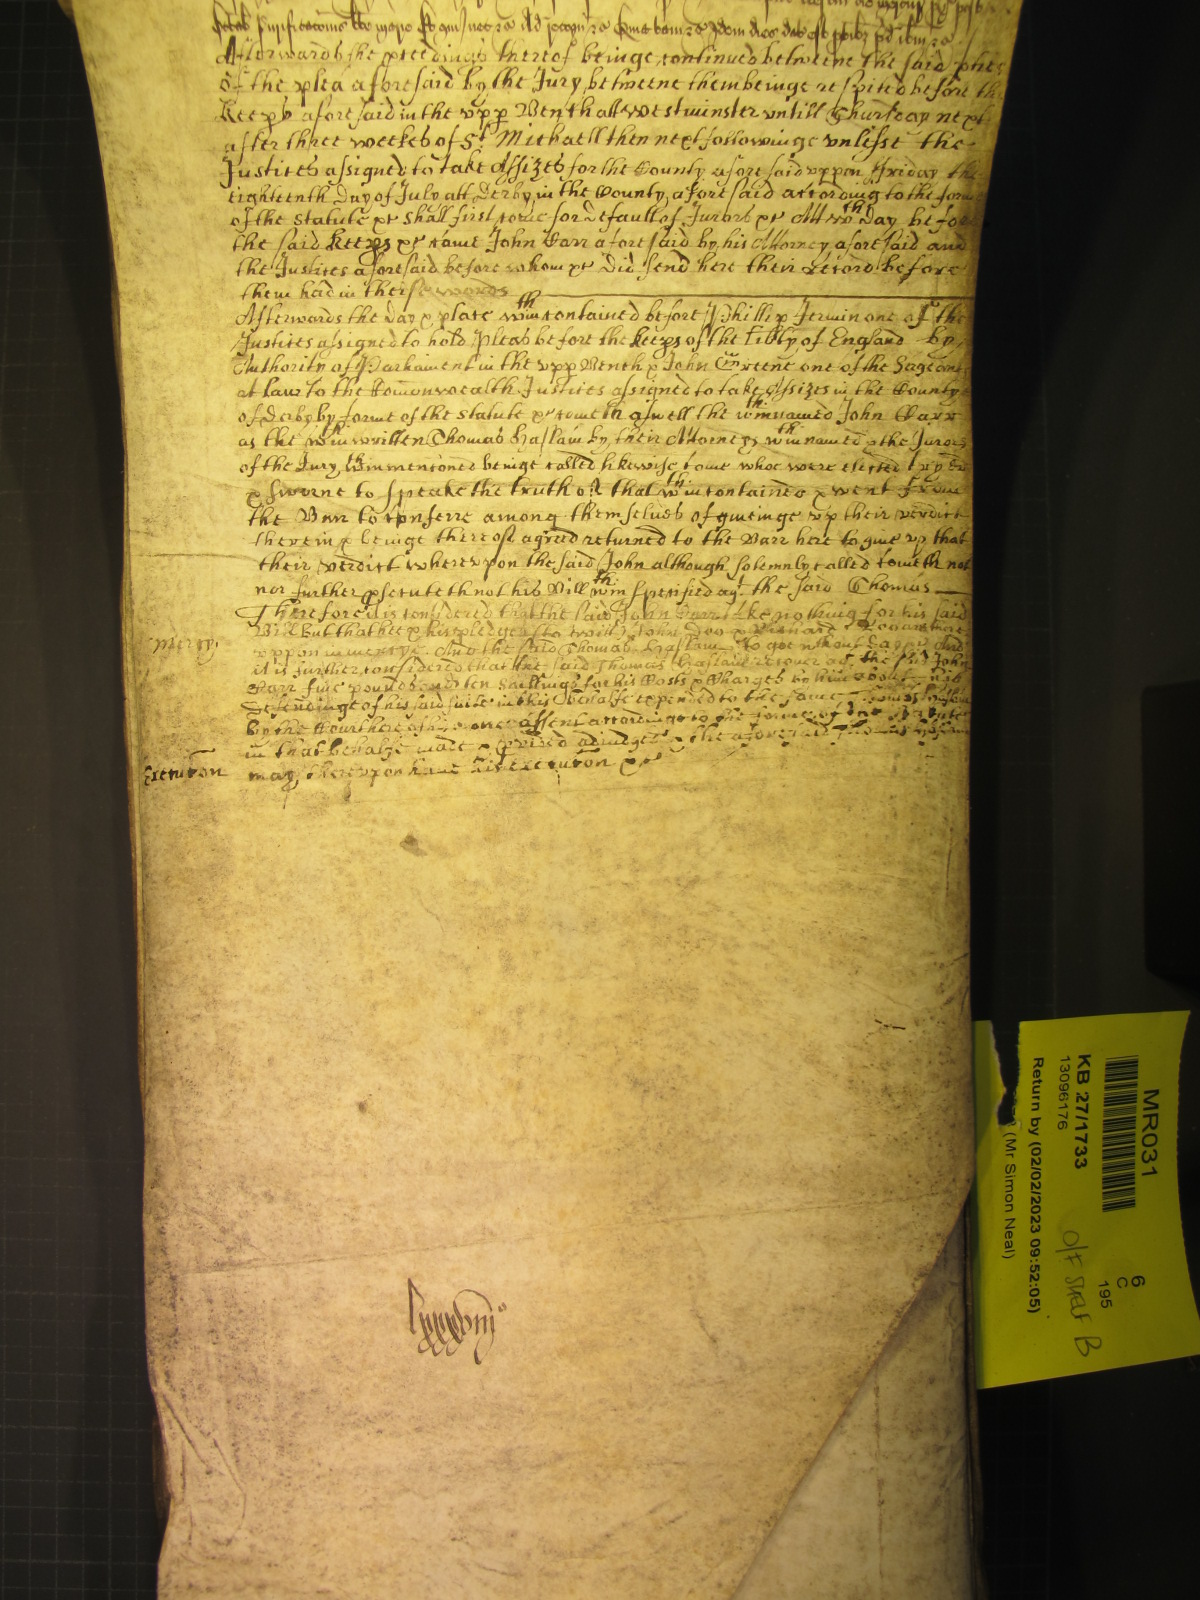 Afterwards the p'ceedings thereof beinge continued betweene the said p'ties
of the plea aforesaid by the Jury betweene them beinge respited before the
keep's aforesaid in the vpp Bench att westminster vntill Thursday next
after three weekes of St Michaell then next followinge vnlesse the
Justices assigned to take Assizes for the County aforesaid vppon Friday the
eighteenth day of July att Derby in the County aforesaid according to the forme
of the statute &c shall first come for default of Jurors &c Att wch day before
the said keep's &c came John Carr aforesaid by his Attorney aforesaid and
the Justices aforesaid before whom &c did send here their record before
them had in theise words
Afterwards the day & place wthin contained before Phillip Jermin one of the
Justices assigned to hold Pleas before the keep's of the lib'ty of England by
Authority of Parliament in the vpp Bench & John Greene one of the Sargeants
at law to the Comonwealth Justices assigned to take Assizes in the County
of Derby by forme of the statute &c cometh aswell the wthin named John Carr
as the wthin written Thomas Haslam by their Attorneys wthin named & the Jurors
of the Jury wthin mentioned beinge called likewise come whoe were elected tryed
& sworne to speake the truth of that wthin contained & went from
the Barr to conferre among themselues of giueinge vp their verdict
therein & beinge thereof agreed returned to the Barr here to giue vp that
their verdict wherevpon the said John although solemnly called cometh not
nor further p'secuteth not his Bill wthin specified agt the said Thomas
Mercy Therefore it is considered that the said John Carr take nothing for his said
Bill but that hee & his pledges (to witt) John Doo & Richard Roo are
vppon in mercye And the said Thomas Haslam to goe wthout day And
it is further considered that the said Thomas Haslam recover agt the said John
Carr fiue pounds and ten shillings for his Costs & Charges by him about
defendinge of his said suite in this behalfe expended to the same Thomas Haslam
by the Court here of assent accordinge to the forme of the Statute
in that behalfe made & p'vided adiudged & the aforesaid Thomas Haslam
Execution may therevpon haue his execution &c
lxxxviijo
MR031
KB 27/1733
13096176
Return by (02/02/2023 09:52:05)
(Mr Simon Neal)
6
C
195
O/F Shelf B